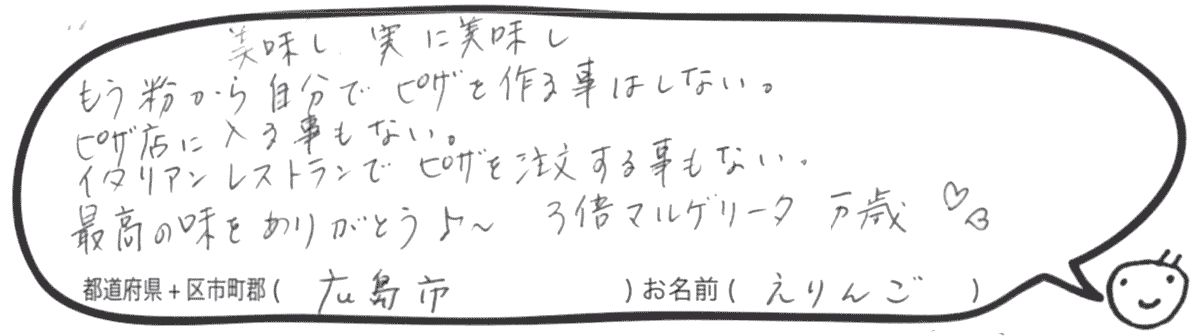 美味し、実に美味し
もう粉から自分でピザを作る事はしない。
ピザ店に入る事もない。
イタリアンレストランでピザを注文する事もない。
最高の味をありがとう♪〜 3倍マルゲリータ 万歳♡
都道府県+区市町郡( 広島市 )お名前( えりんご )